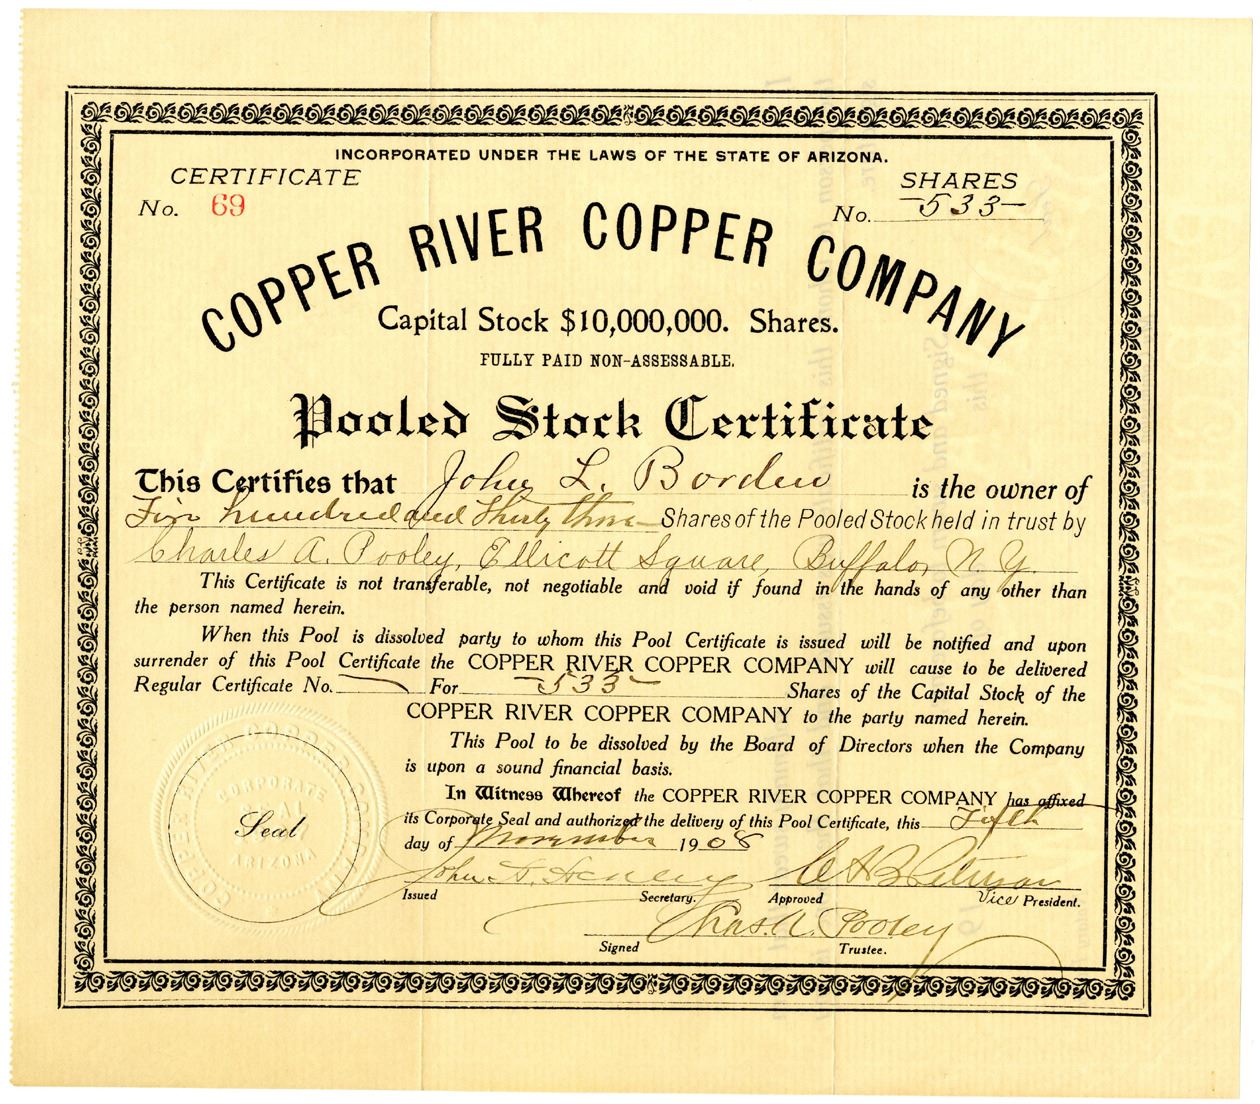 INCORPORATED UNDER THE LAWS OF THE STATE OF ARIZONA.
CERTIFICATE
No. 69
SHARES
No. 533
COPPER RIVER COPPER COMPANY
Capital Stock $10,000,000. Shares.
FULLY PAID NON-ASSESSABLE.
Pooled Stock Certificate
This Certifies that John L. Borden is the owner of
Five hundred and Thirty three Shares of the Pooled Stock held in trust by
Charles A. Pooley, Ellicott Square, Buffalo, N. Y.
This Certificate is not transferable, not negotiable and void if found in the hands of any other than
the person named herein.
When this Pool is dissolved party to whom this Pool Certificate is issued will be notified and upon
surrender of this Pool Certificate the COPPER RIVER COPPER COMPANY will cause to be delivered
Regular Certificate No. For 533 Shares of the Capital Stock of the
COPPER RIVER COPPER COMPANY to the party named herein.
This Pool to be dissolved by the Board of Directors when the Company
is upon a sound financial basis.
In Witness Whereof the COPPER RIVER COPPER COMPANY has affixed
its Corporate Seal and authorized the delivery of this Pool Certificate, this Fifth
day of November 1908
COPPER RIVER COPPER COMPANY
CORPORATE
SEAL
ARIZONA
Seal
John
Issued Secretary. Approved Vice President.
Chas. A. Pooley
Signed Trustee.